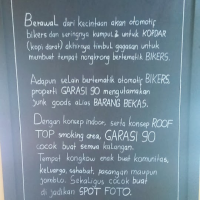 Berawal dari kecintaan akan otomotif
bikers dan seringnya kumpul² untuk KOPDAR
(kopi darat) akhirnya timbul gagasan untuk
membuat tempat nongkrong bertematik BIKERS.
Adapun selain bertematik otomotif BIKERS,
properti GARASI 90 mengutamakan
junk goods alias BARANG BEKAS.
Dengan konsep indoor, serta konsep ROOF
TOP smoking area, GARASI 90
cocok buat semua kalangan.
Tempat nongkow enak buat komunitas,
keluarga, sahabat, pasangan maupun
jomblo. Sekaligus cocok buat
di jadikan SPOT FOTO.